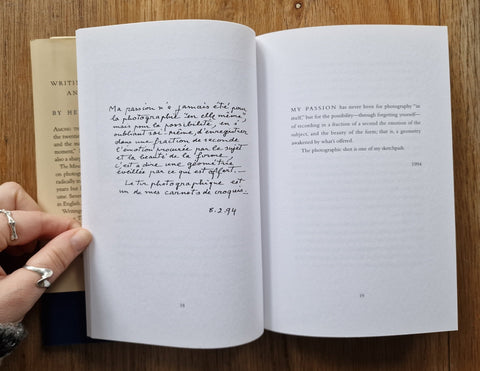 WRITIN
AN
BY HE
moment,"
also a shar
The Min
years but
Writings
in English
Ma passion n'a jamais été pour
la photographie "en elle même",
mais pour la possibilité, en s'
oubliant soi même, d'enregistrer
dans une fraction de seconde
l'émotion procurée par le sujet
et la beauté de la forme,
c'est à dire une géométrie
éveillée par ce qui est offert.—
Le tir photographique est
un de mes carnets de croquis.
8.2.94
18
MY PASSION has never been for photography "in
itself," but for the possibility—through forgetting yourself—
of recording in a fraction of a second the emotion of the
subject, and the beauty of the form; that is, a geometry
awakened by what's offered.
The photographic shot is one of my sketchpads.
1994
19